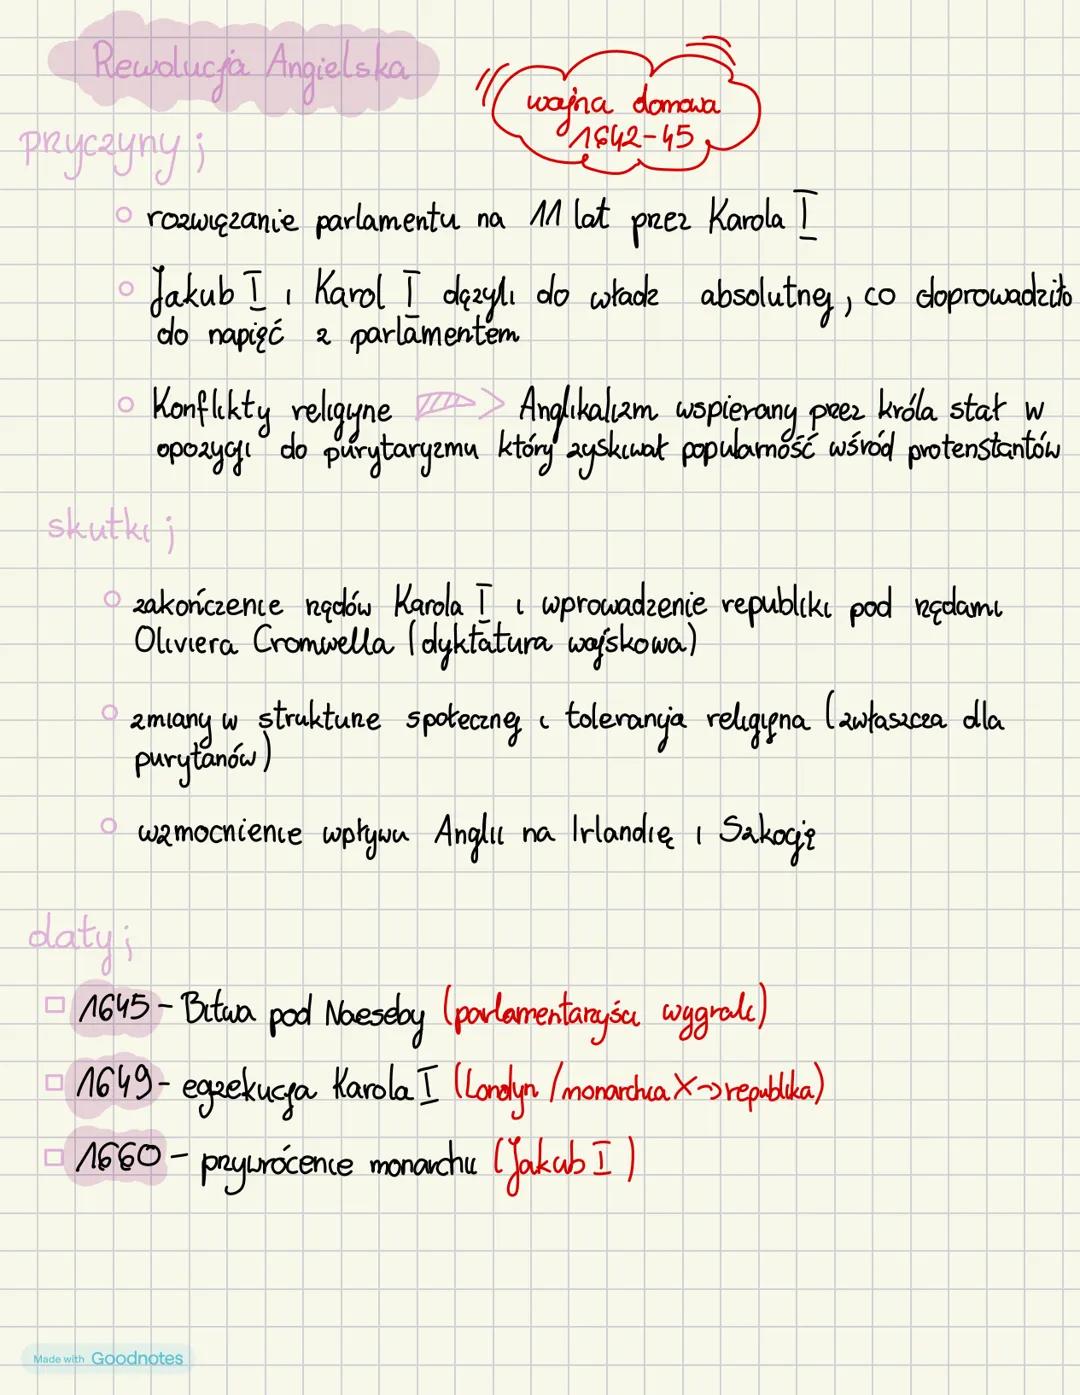 Rewolucja Angielska
wojna domowa
1642-45
pryczyny;
rozwiązanie parlamentu na 11 lat przez Karola I
Jakub I i Karol I dążyli do władz absolutnej, co doprowadziło
do napięć z parlamentem
Konflikty religijne Anglikalizm wspierany przez króla stał w
opozycji do purytaryzmu który zyskiwał popularność wśród protenstantów
skutki;
zakończenie rządów Karola I i wprowadzenie republiki pod rządami
Oliviera Cromwella (dyktatura wojskowa)
zmiany w strukturze społecznej i tolerancja religijna (zwłaszcza dla
purytanów)
wzmocnienie wpływu Anglii na Irlandię i Szkocję
daty;
1645 - Bitwa pod Naeseby (parlamentaryści wygrali)
1649 - egzekucja Karola I (Londyn / monarchia X -> republika)
1660 - przywrócenie monarchii (Jakub I)
Made with Goodnotes